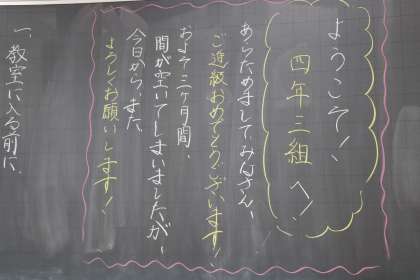 ようこそ!、
四年三組へ!、
あらためまして、みなさん、
ご進級おめでとうございます!、
およそ三ヶ月間、
間が空いてしまいましたが、
今日から、また、
よろしくお願いします!、
一、教室に入る前に、